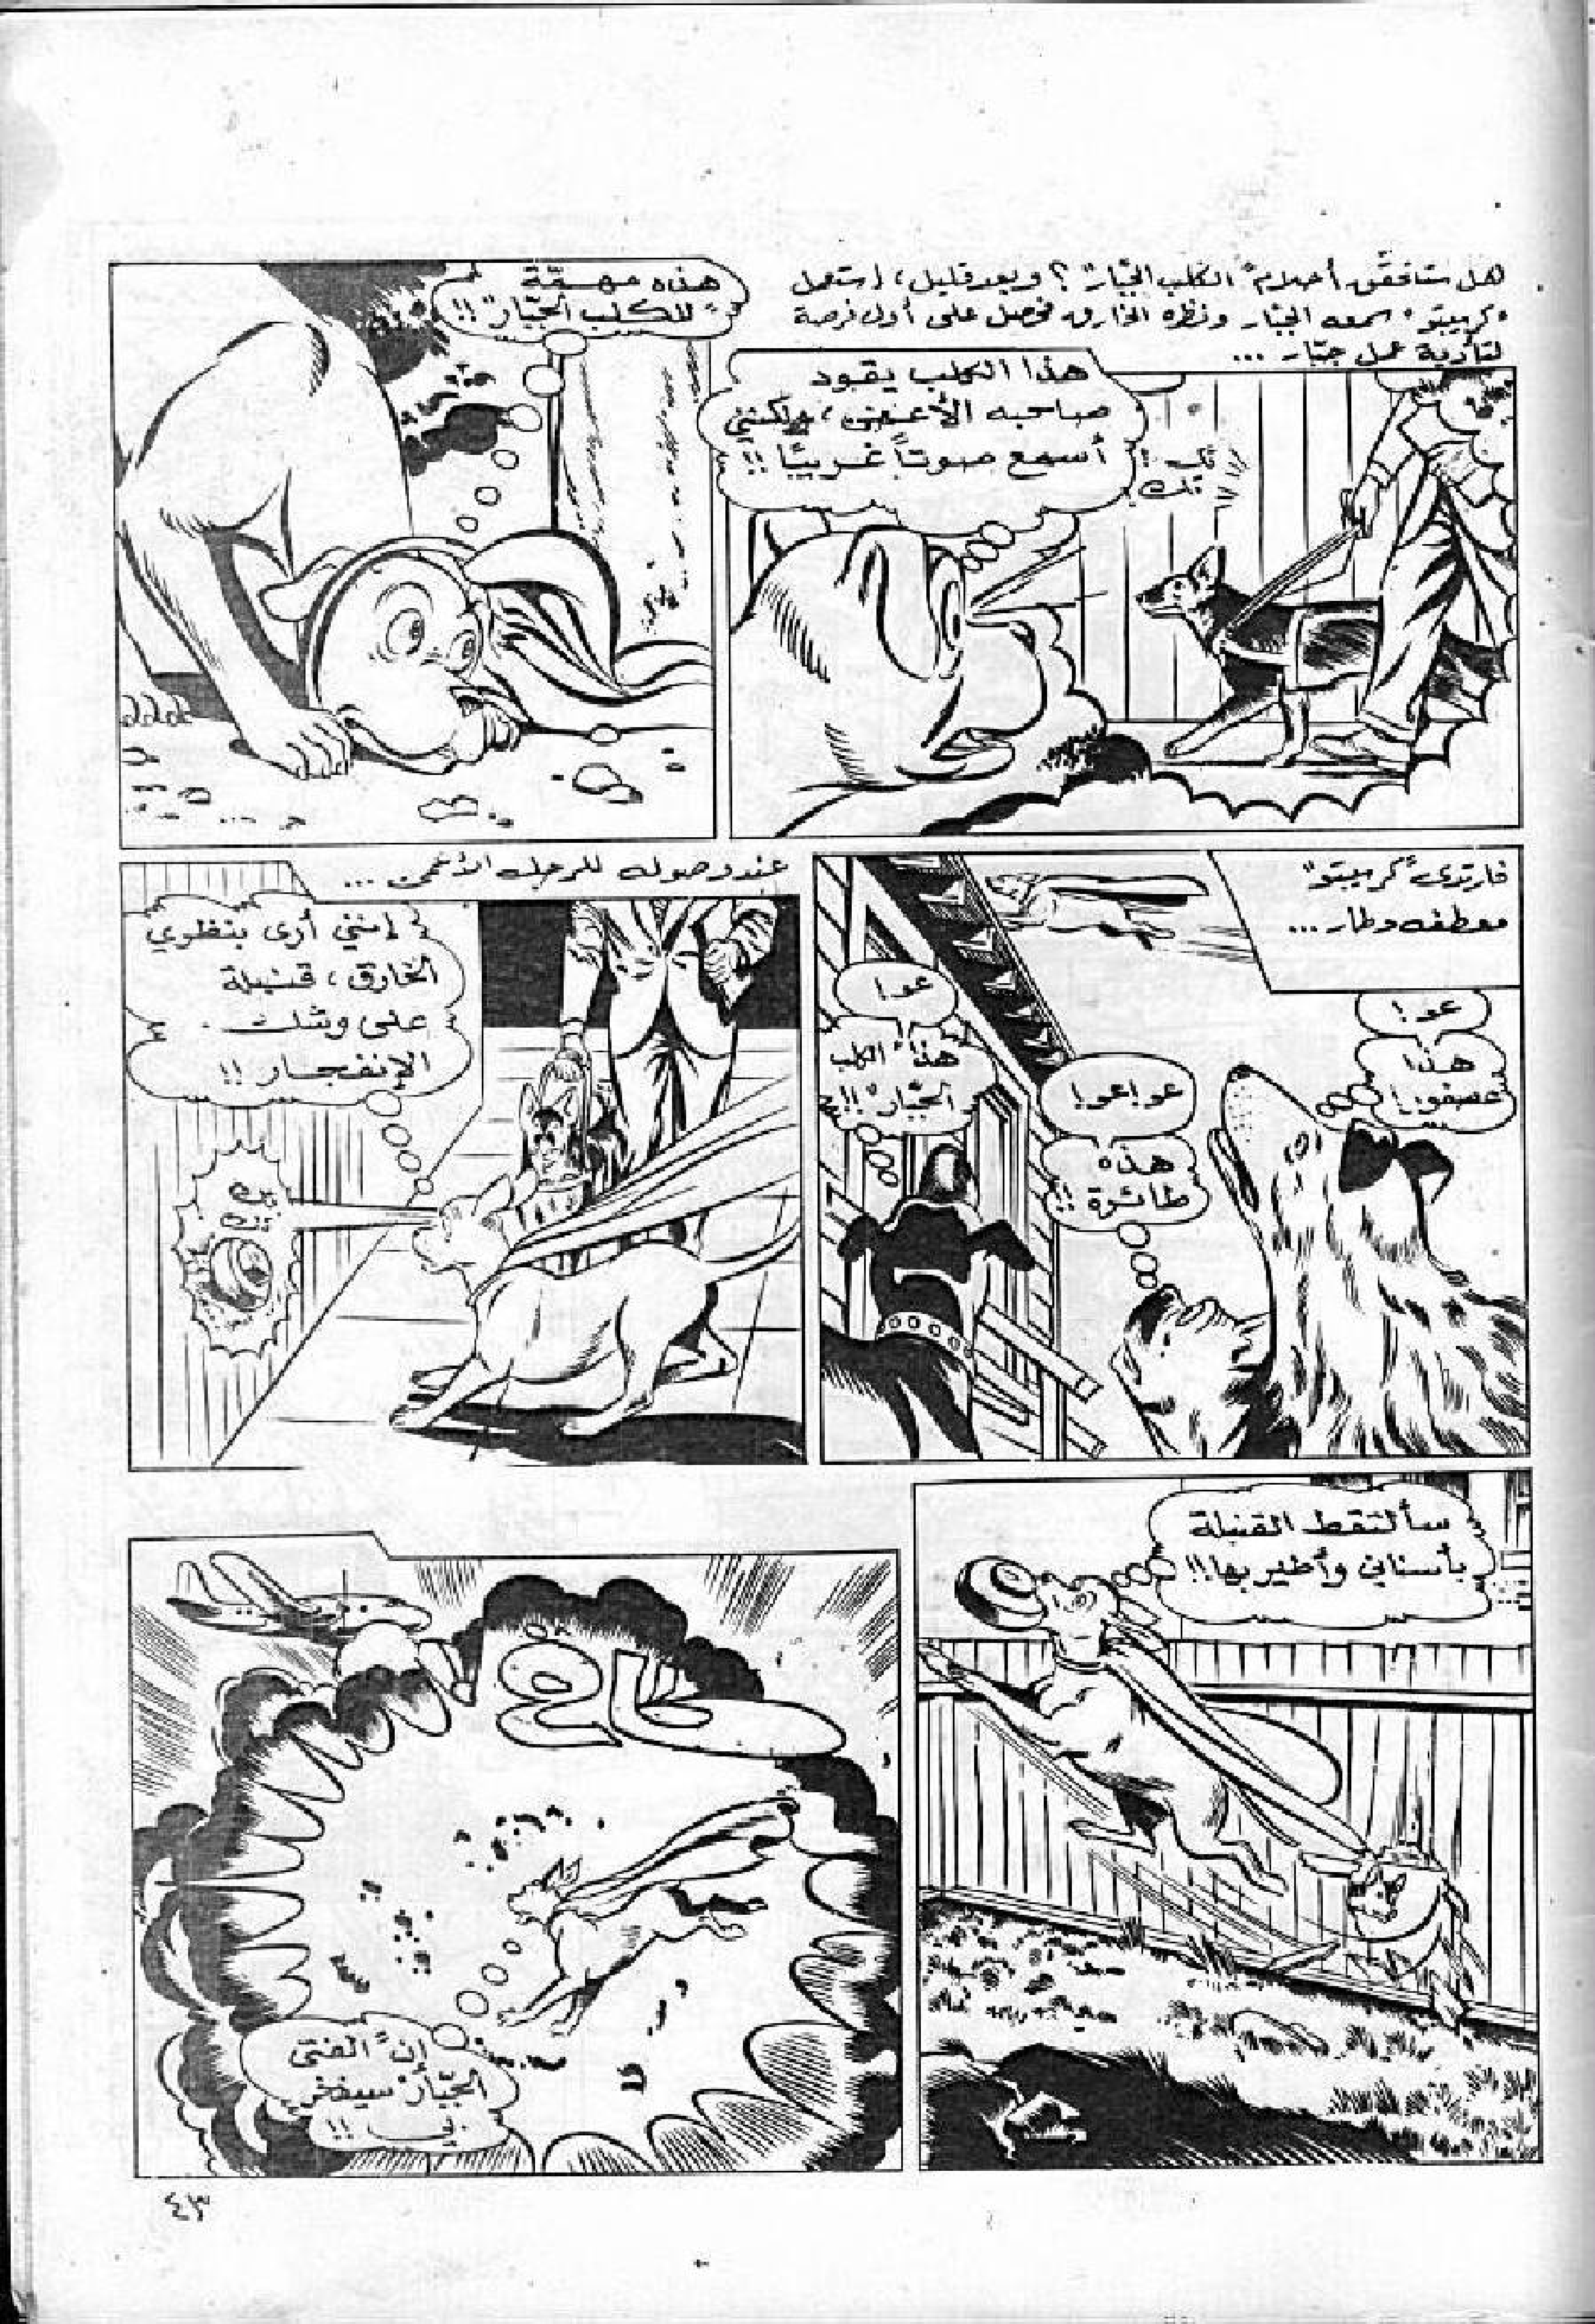 هل ستتحقّق أحلام "الكلب الجبّار"؟ وبعد قليل، إستعمل
"كريبتو" سمعه الجبّار ونظره الخارق فحصل على أول فرصة
لتأدية عمل جبّار ...
هذا الكلب يقود
صاحبه الأعمى، ولكنني
أسمع صوتاً غريبًا !!
تك
تك
هذه مهمّة
"للكلب الجبّار" !!
فارتدى "كريبتو"
معطفه وطار ...
عو!
هذا
عصفور!
عو! عو!
هذه
طائرة !!
عو!
هذا "الكلب
الجبّار" !!
عند وصوله للرجل الأعمى ...
إنني أرى بنظري
الخارق، قنبلة
على وشك
الإنفجار !!
سألتقط القنبلة
بأسناني وأطير بها !!
إن "الفتى
الجبّار" سيفخر
بي !!
٤٣